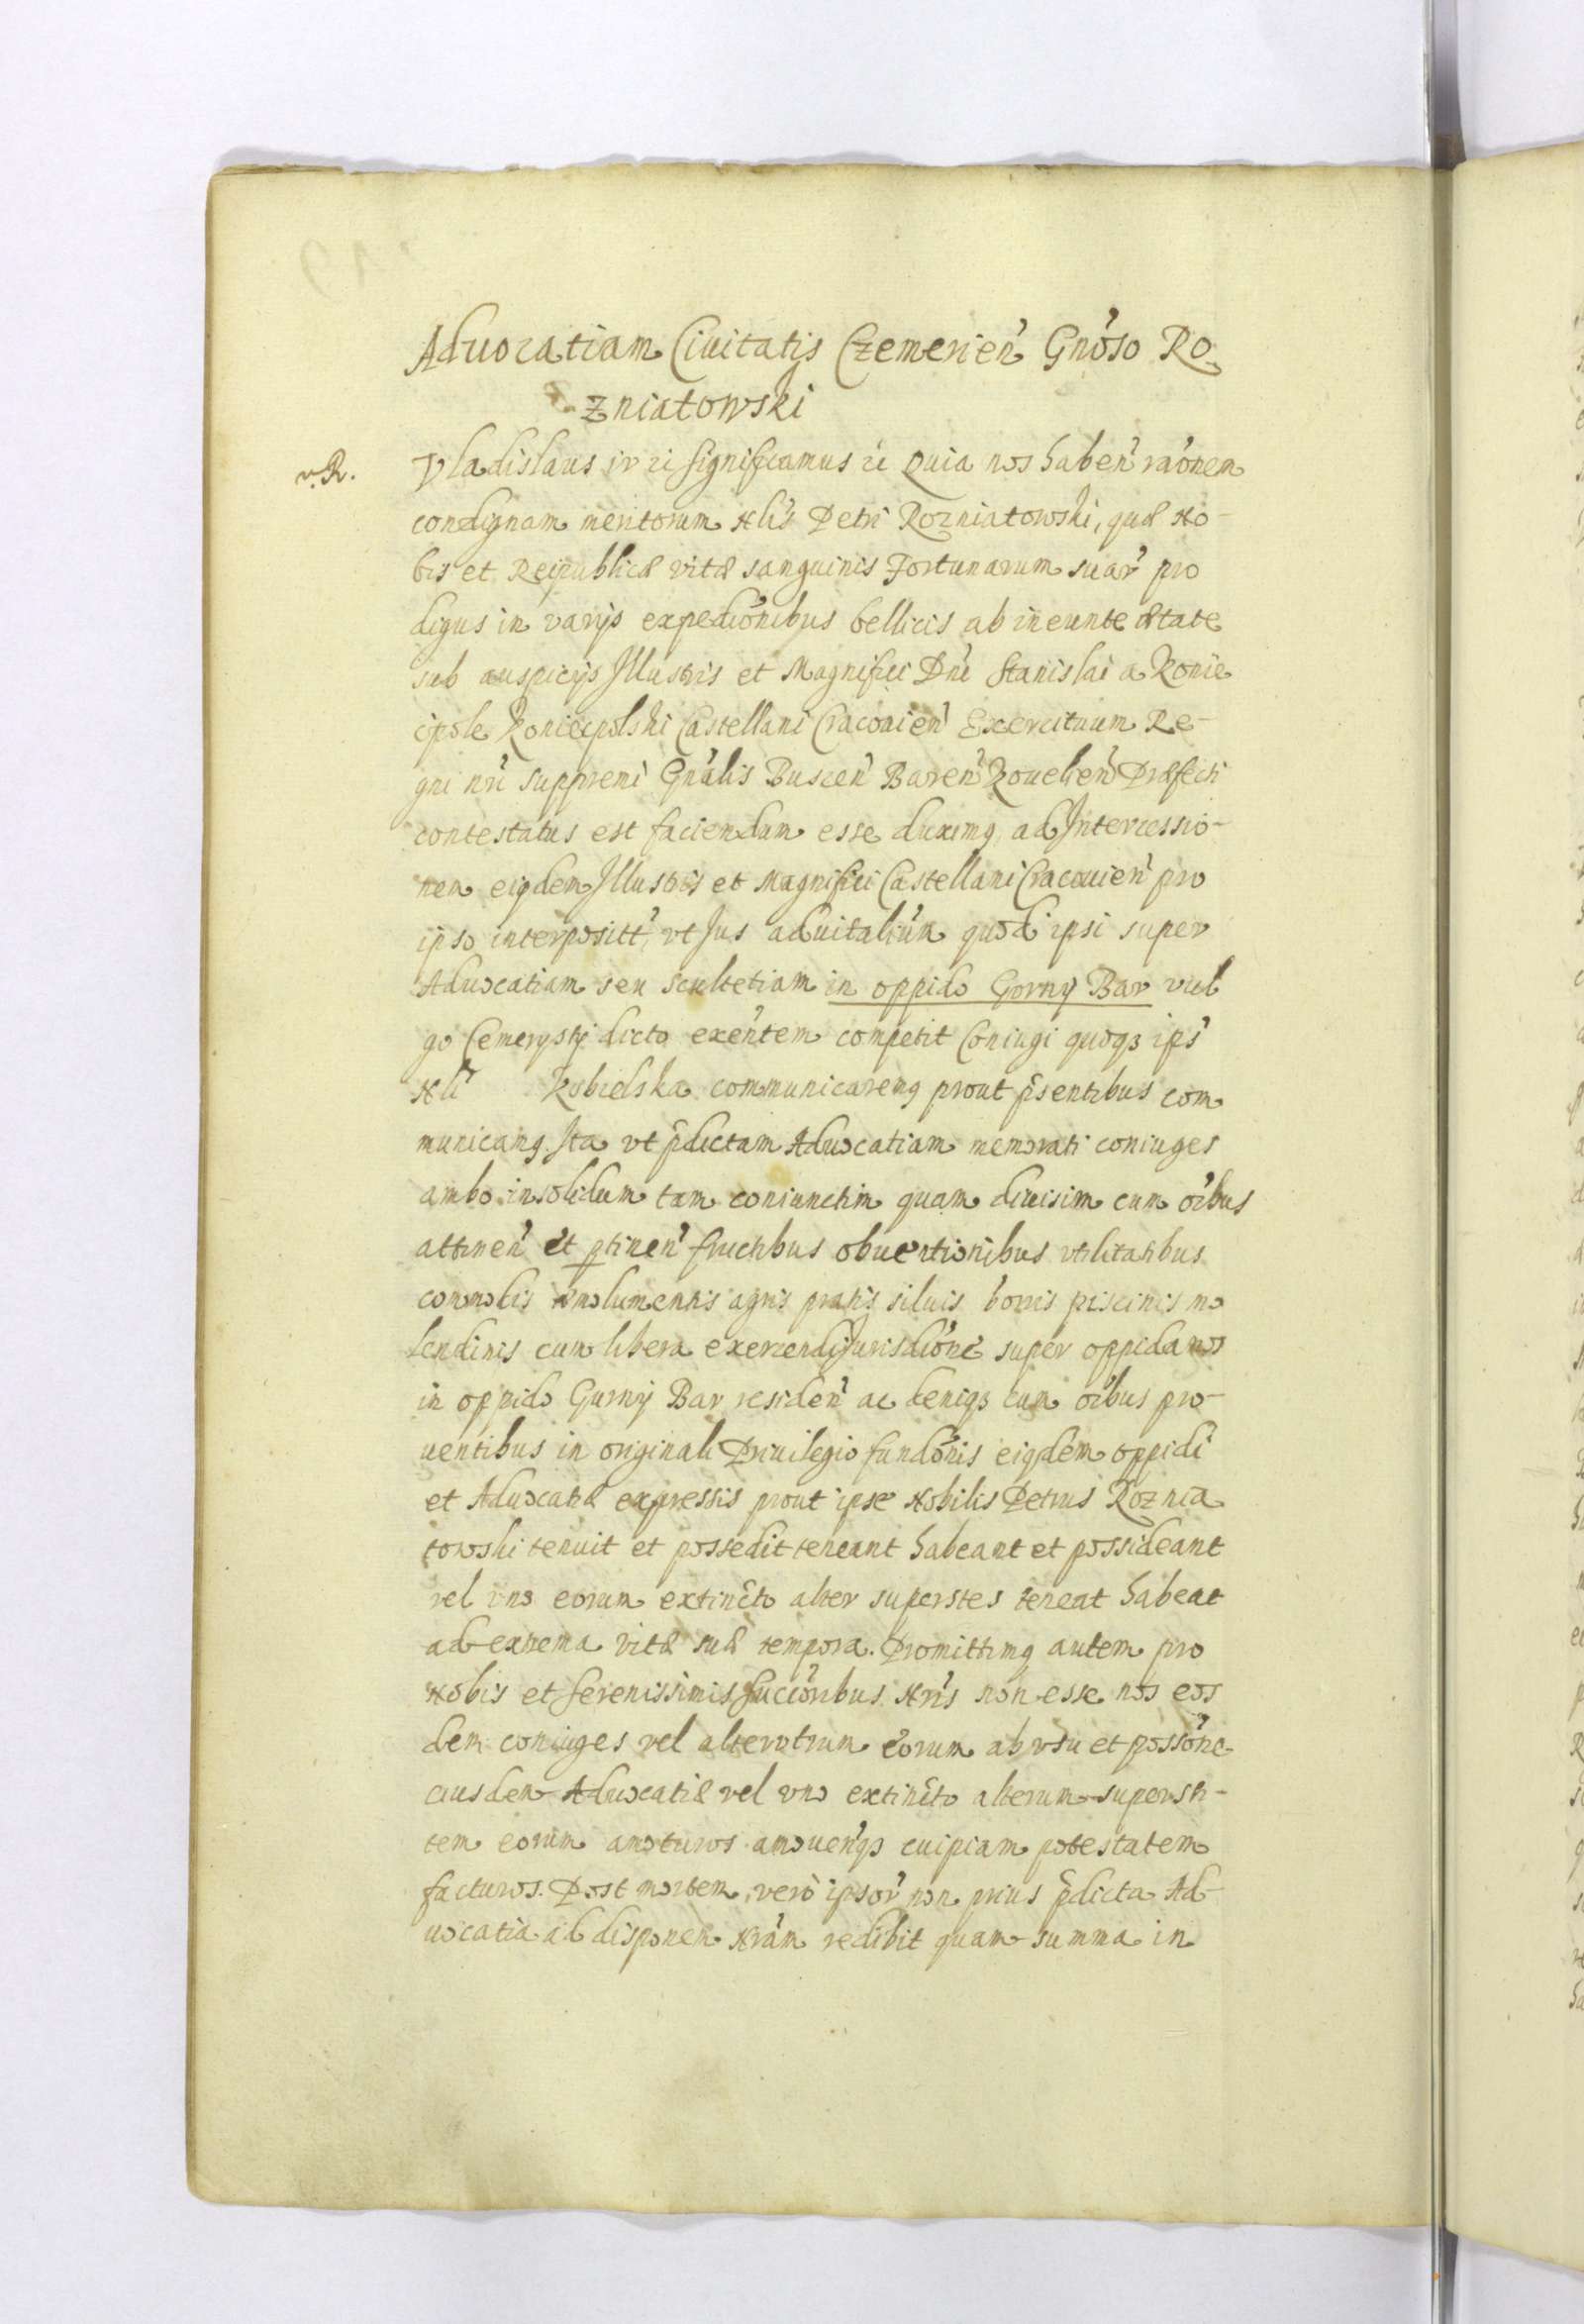 Aduocatiam Ciuitatis Czemerien̾ Gnoso Ro
zniatowski
v. R.
Vladislaus iv ꝛc significamus ꝛc Quia nos haben̾ raonem
condignam meritorum Nlis Petri Rozniatowski, quæ No-
bis et Reipublicæ vitæ sanguinis Fortunarum suar̾ pro
digus in varijs expedionibus bellicis ab ineunte ætate
sub auspicijs Illustris et Magnifici Dni Stanislai a Konie
cpole Koniecpolski Castellani Cracouien̾ Exercituum Re-
gni nri suppremi Gnalis Buscen̾ Baren̾ Kouelien̾ Præfecti
contestatus est faciendum esse duximꝰ ad Intercessio-
nem eiꝰdem Illustris et Magnifici Castellani Cracouien̾ pro
ipso interposit̾ vt Jus aduitalium quod ipsi super
Aduocatiam seu scultetiam in oppido Gorny Bar vul
go Cemerysy dicto exentem competit Coniugi quoqꝫ ips̾
Nli Kobielska communicaremꝰ prout p̄sentibus com
municamꝰ. Ita vt p̄dictam Aduocatiam memorati coniuges
ambo insolidum tam coniunctim quam diuisim cum oibus
attinen̾ et ꝑtinen̾ fructibus obuentionibus vtilitatibus
commodis emolumentis agris pratis siluis borris piscinis mo
lendinis cum libera exercendi Jurisdione super oppidanos
in oppido Gurny Bar residen̾ ac deniqꝫ cum oibus pro-
uentibus in originali Priuilegio fundonis eiꝰdem oppidi
et Aduocatiæ expressis prout ipse Nobilis Petrus Roznia
towski tenuit et possedit teneant habeant et possideant
vel vno eorum extincto alter superstes teneat habeat
ad extrema vitæ suæ tempora. Promittimꝰ autem pro
Nobis et Serenissimis Succoribus Nris non esse nos eos
dem coniuges vel alterutrum eorum ab vsu et possone
eiusdem Aduocatiæ vel vno extincto alterum supersti-
tem eorum amoturos amouen̾qꝫ cuipiam potestatem
facturos. Post mortem vero ipsor̾ non prius p̄dicta Ad-
uocatia ad disponem Nram redibit quam summa in